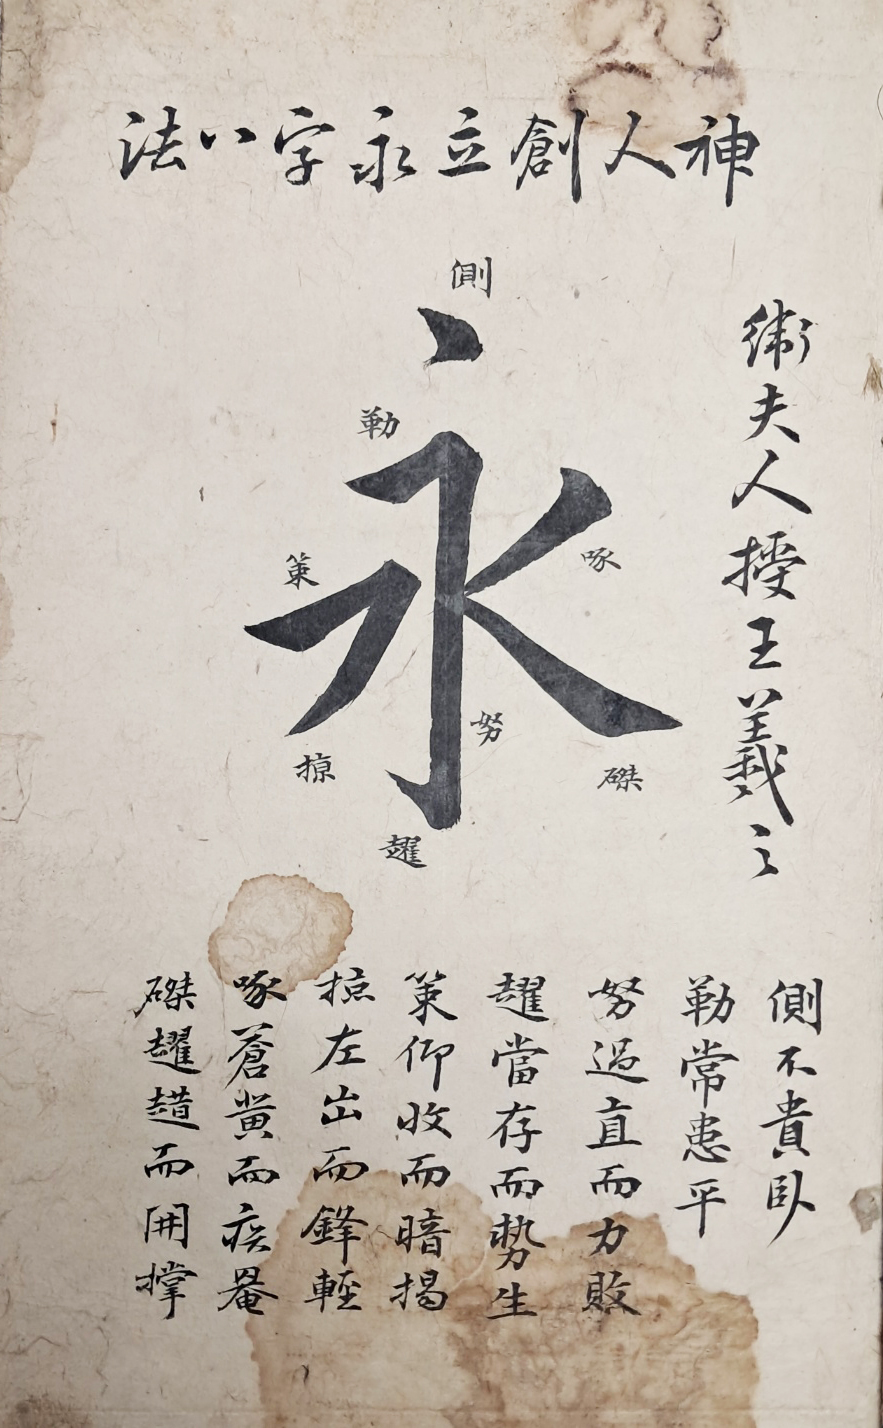 神人創立永字八法
衛夫人授王義之
側
永
勒
策
啄
努
掠
磔
趯
側不貴臥
勒常患平
努過直而力敗
趯當存而勢生
策仰收而暗揭
掠左出而鋒輕
啄蒼黃而疾罨
磔趯趞而開撑